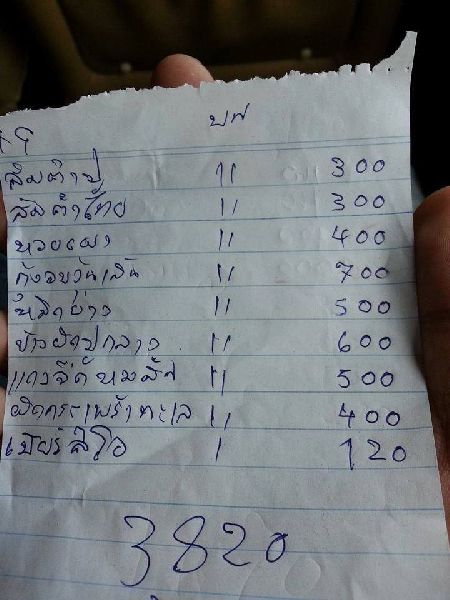 ส้มตำปู 11 300
ส้มตำไทย 11 300
หอยเผา 11 400
กุ้งอบวุ้นเส้น 11 700
หมึกย่าง 11 500
ข้าวผัดปูกลาง 11 600
แกงจืด 11 500
ผัดกระเพราทะเล 11 400
เบียร์ลีโอ 1 120
3820